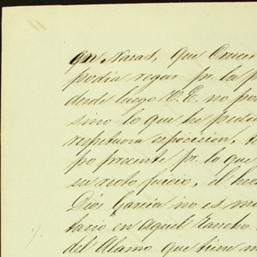 que Naras, que Cruci
podia regar por la p
desde luego V. E. no po
sino lo que he pedi
respetuosa esposicion, t
po presente pr. lo que
su recto juicio, el hec
Dios Garcia no es m
tario en aquel Rancho
del Alamo que tiene m